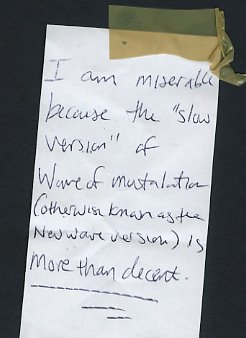 I am miserable
because the "slow
version" of
Wave of mutalation
(otherwise known as the
New wave version) is
more than decent.